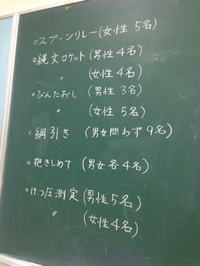 ○スプーンリレー(女性5名)
○縄文ロケット(男性4名)
〃 (女性4名)
○びんたおし (男性3名)
〃 (女性5名)
○綱引き (男女問わず9名)
○抱きしめて (男女各4名)
○けつ圧測定(男性5名)
〃 (女性4名)